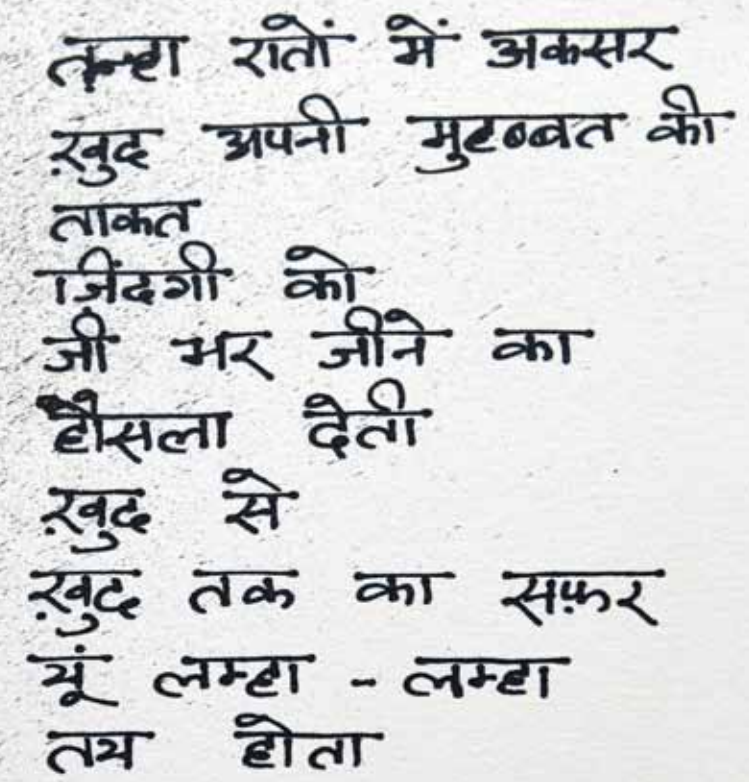 तन्हा रातों में अकसर
ख़ुद अपनी मुहब्बत की
ताकत
जिंदगी को
जी भर जीने का
हौसला देती
ख़ुद से
ख़ुद तक का सफ़र
यूं लम्हा - लम्हा
तय होता